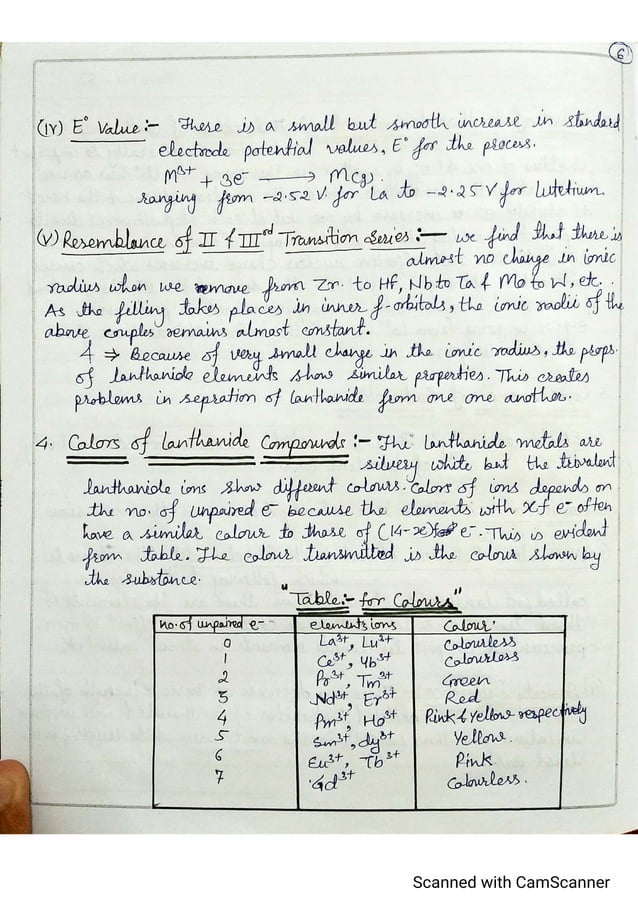 6
(IV) E° Value :- There is a small but smooth increase in standard
electrode potential values, E° for the process.
M³⁺ + 3e⁻ → M(g)
ranging from -2.52 V for La to -2.25V for Lutetium.
(V) Resemblance of II & IIIrd Transition Series :- we find that there is
almost no change in ionic
radius when we remove from Zr. to Hf, Nb to Ta & Mo to W, etc. .
As the filling takes places in inner f-orbitals, the ionic radii of the
above couples remains almost constant.
⇒ Because of very small change in the ionic radius, the props.
of lanthanide elements show similar properties. This creates
problems in sepration of lanthanide from one one another.
4. Calors of lanthanide Compounds :- The lanthanide metals are
silvery white but the trivalent
lanthanide ions show different colours. Calors of ions depends on
the no. of unpaired e⁻ because the elements with xf e⁻ often
have a similar calour to those of (14-x)f e⁻. This is evident
from table. The colour transmitted is the colour shown by
the substance.
"Table:- for Colours"
no. of unpaired e⁻ elements ions Colour.
0 La³⁺, Lu³⁺ Colourless
1 Ce³⁺, Yb³⁺ Colourless
2 Pr³⁺, Tm³⁺ Green
3 Nd³⁺, Er³⁺ Red
4 Pm³⁺, Ho³⁺ Pink & Yellow respectively
5 Sm³⁺, dy³⁺ Yellow.
6 Eu³⁺, Tb³⁺ Pink
7 Gd³⁺ Colourless.
Scanned with CamScanner